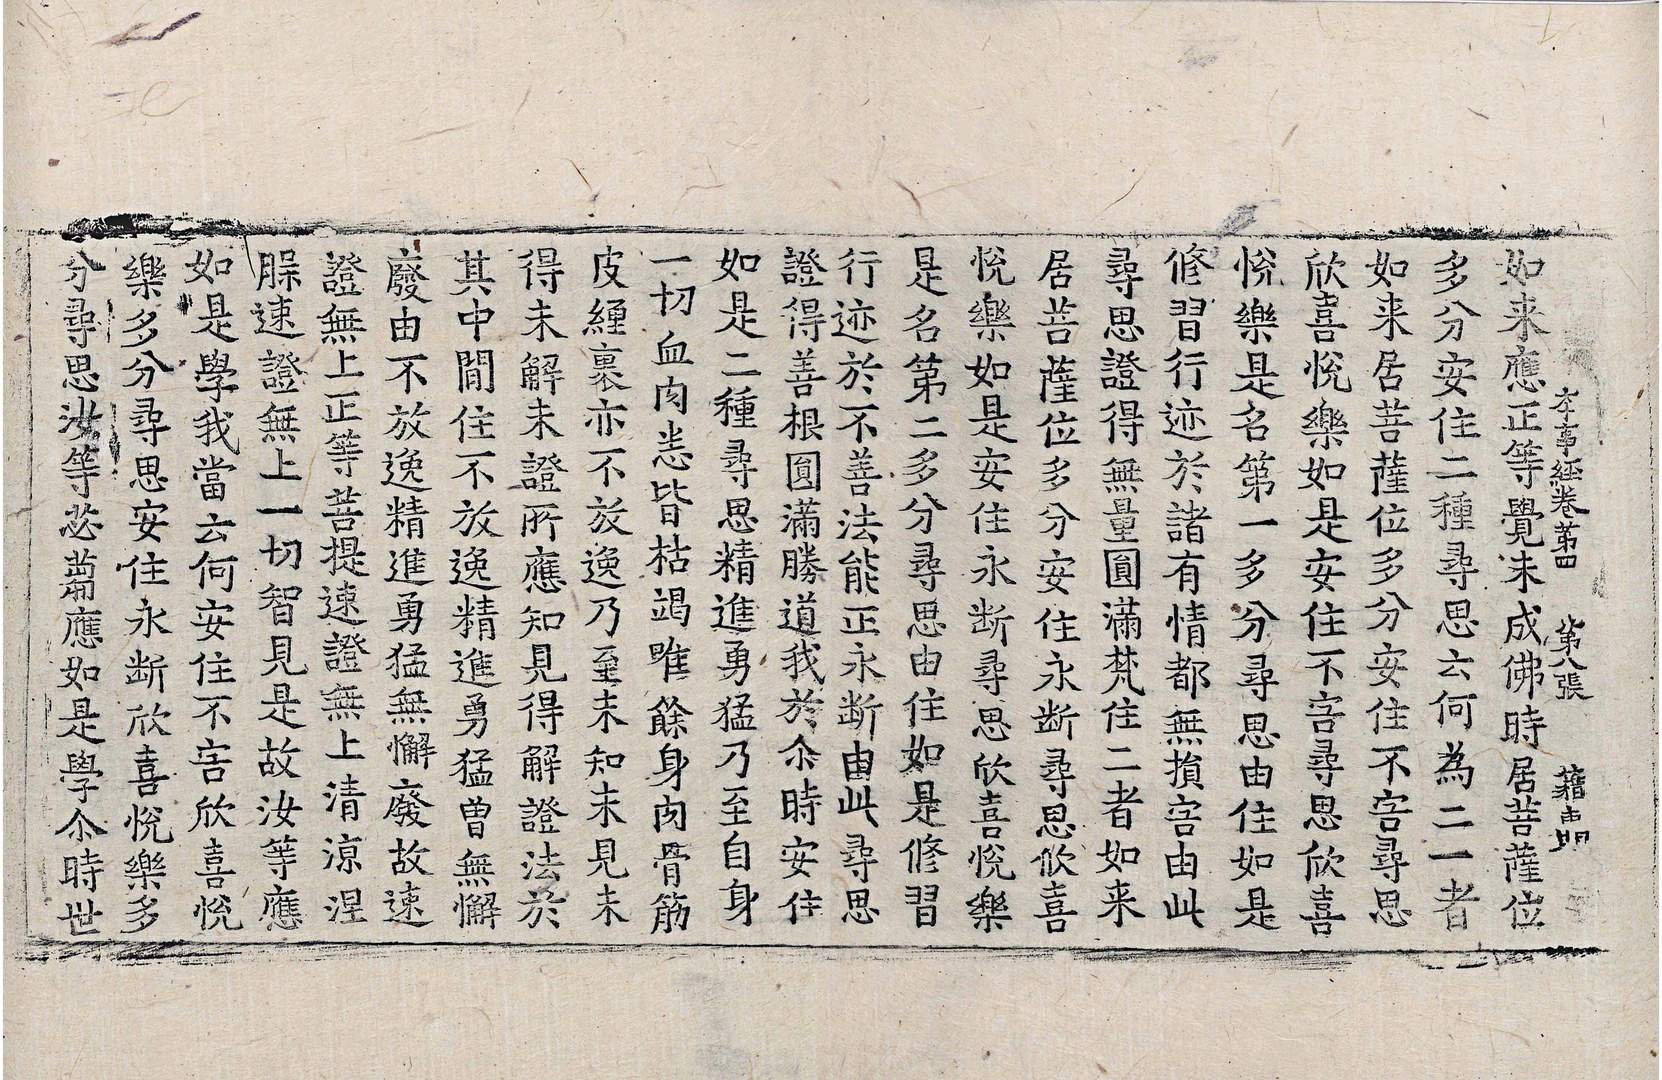 本事經卷第四 第八張 藉
如来應正等覺未成佛時居菩薩位
多分安住二種尋思云何為二一者
如来居菩薩位多分安住不害尋思
欣喜悅樂如是安住不害尋思欣喜
悅樂是名第一多分尋思由住如是
修習行迹於諸有情都無損害由此
尋思證得無量圓滿梵住二者如来
居菩薩位多分安住永断尋思欣喜
悅樂如是安住永断尋思欣喜悅樂
是名第二多分尋思由住如是修習
行迹於不善法能正永断由此尋思
證得善根圓滿勝道我於尒時安住
如是二種尋思精進勇猛乃至自身
一切血肉悉皆枯竭唯餘身肉骨筋
皮纏裹亦不放逸乃至未知未見未
得未解未證所應知見得解證法於
其中間住不放逸精進勇猛曾無懈
廢由不放逸精進勇猛無懈廢故速
證無上正等菩提速證無上清涼涅
腺速證無上一切智見是故汝等應
如是學我當云何安住不害欣喜悅
樂多分尋思安住永断欣喜悅樂多
分尋思汝等苾蒭應如是學尒時世